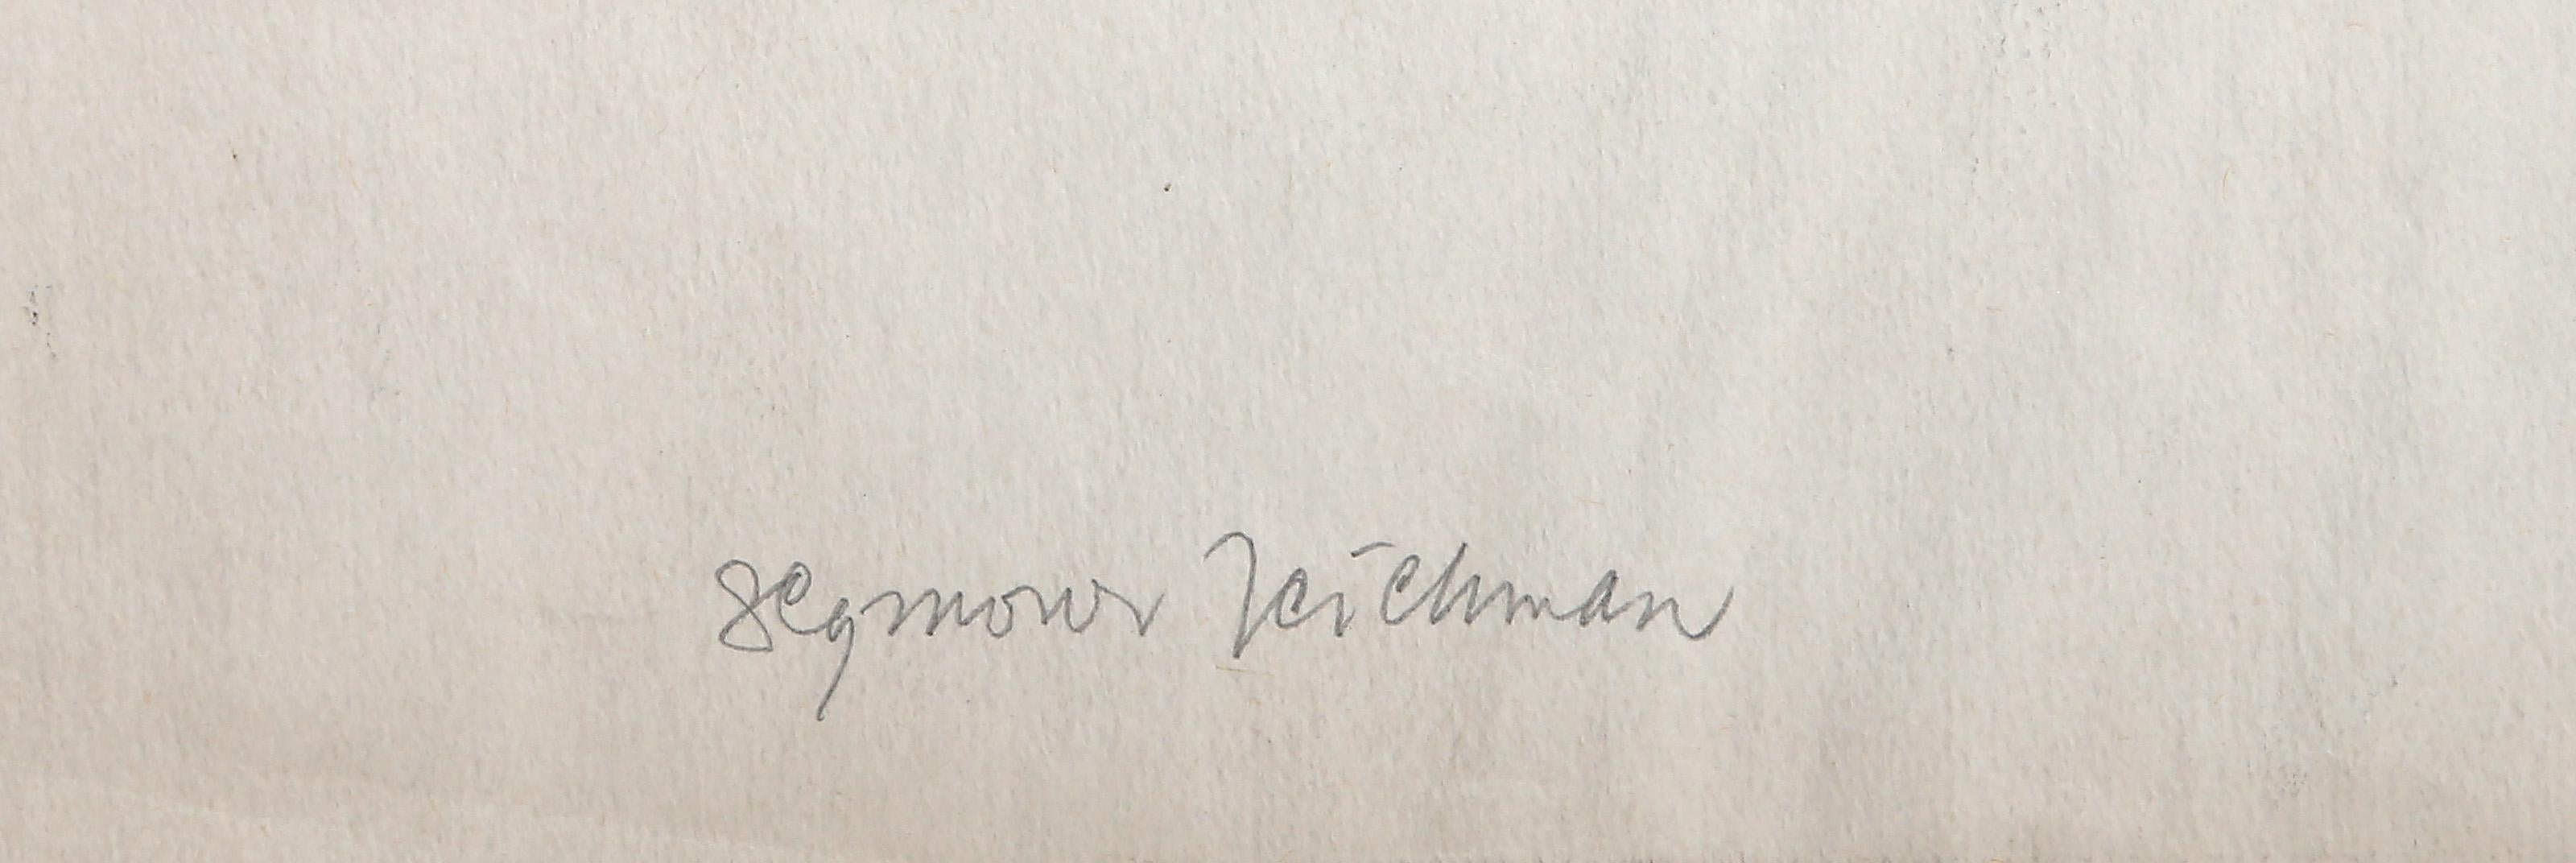 Seymour Leichman